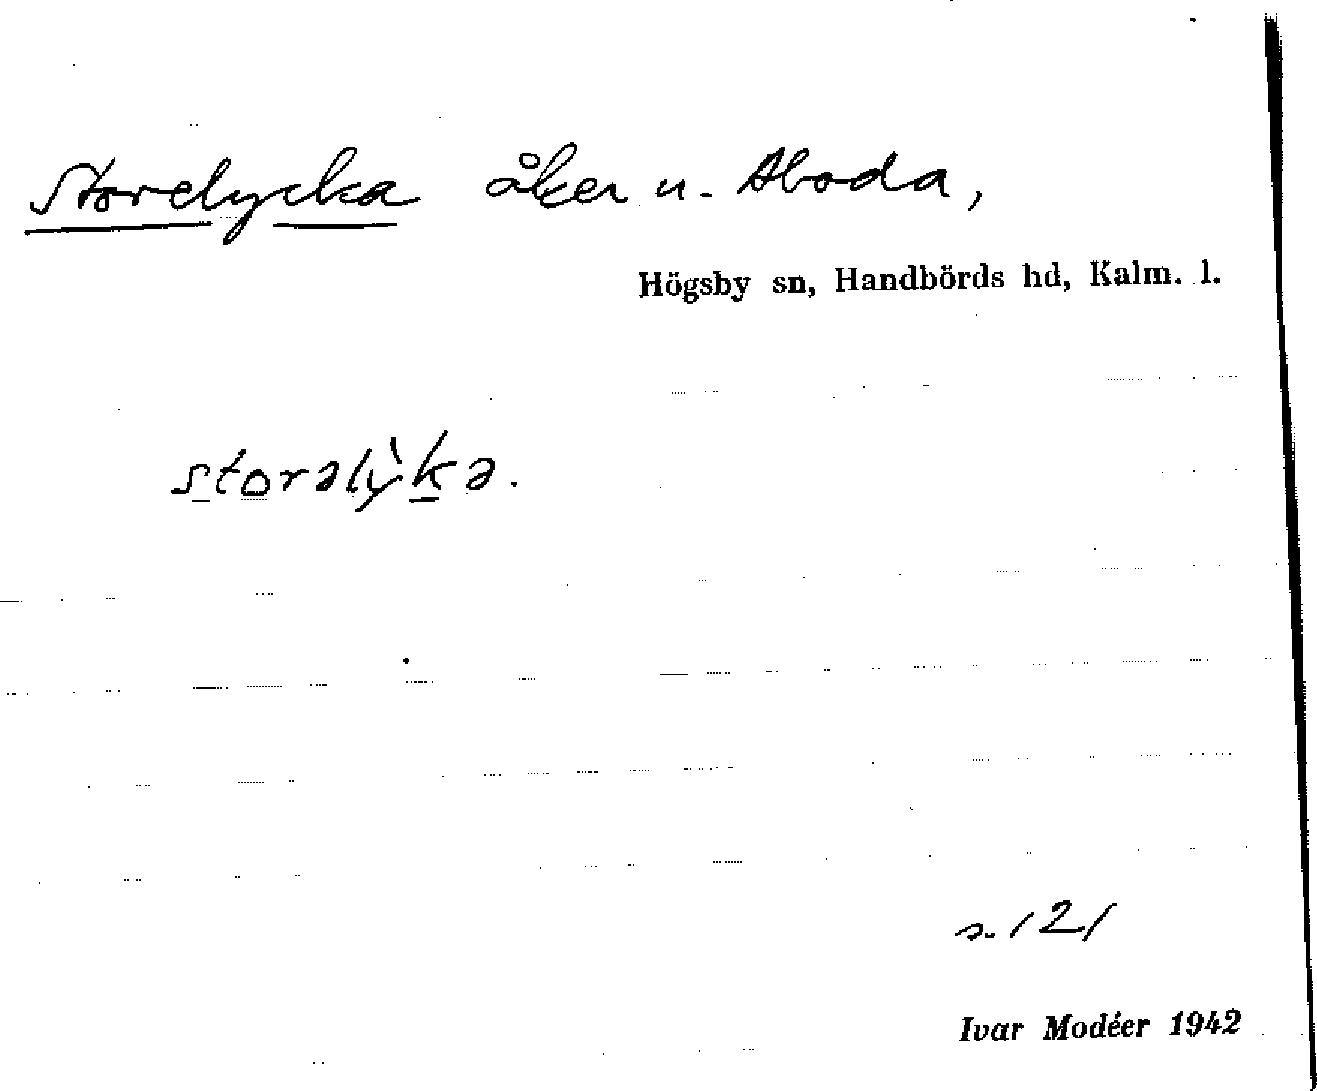 Storelycka åker u. Aboda,
Högsby sn, Handbörds hd, Kalm. l.
storəlỳkə.
s. 121
Ivar Modéer 1942